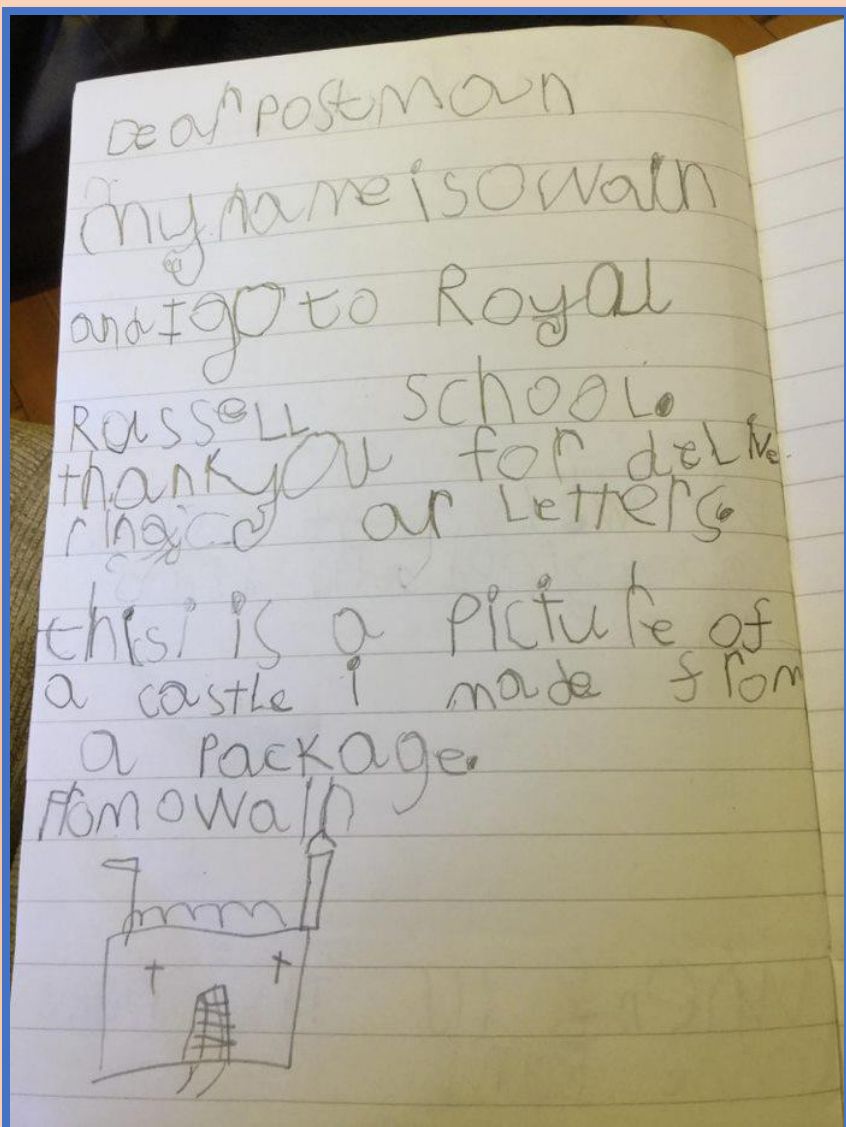 Dear postman
my name is Owain
and I go to Royal
Russell School.
thank you for delive
ring ar Letters.
this is a picture of
a castle i made from
a package.
From Owain